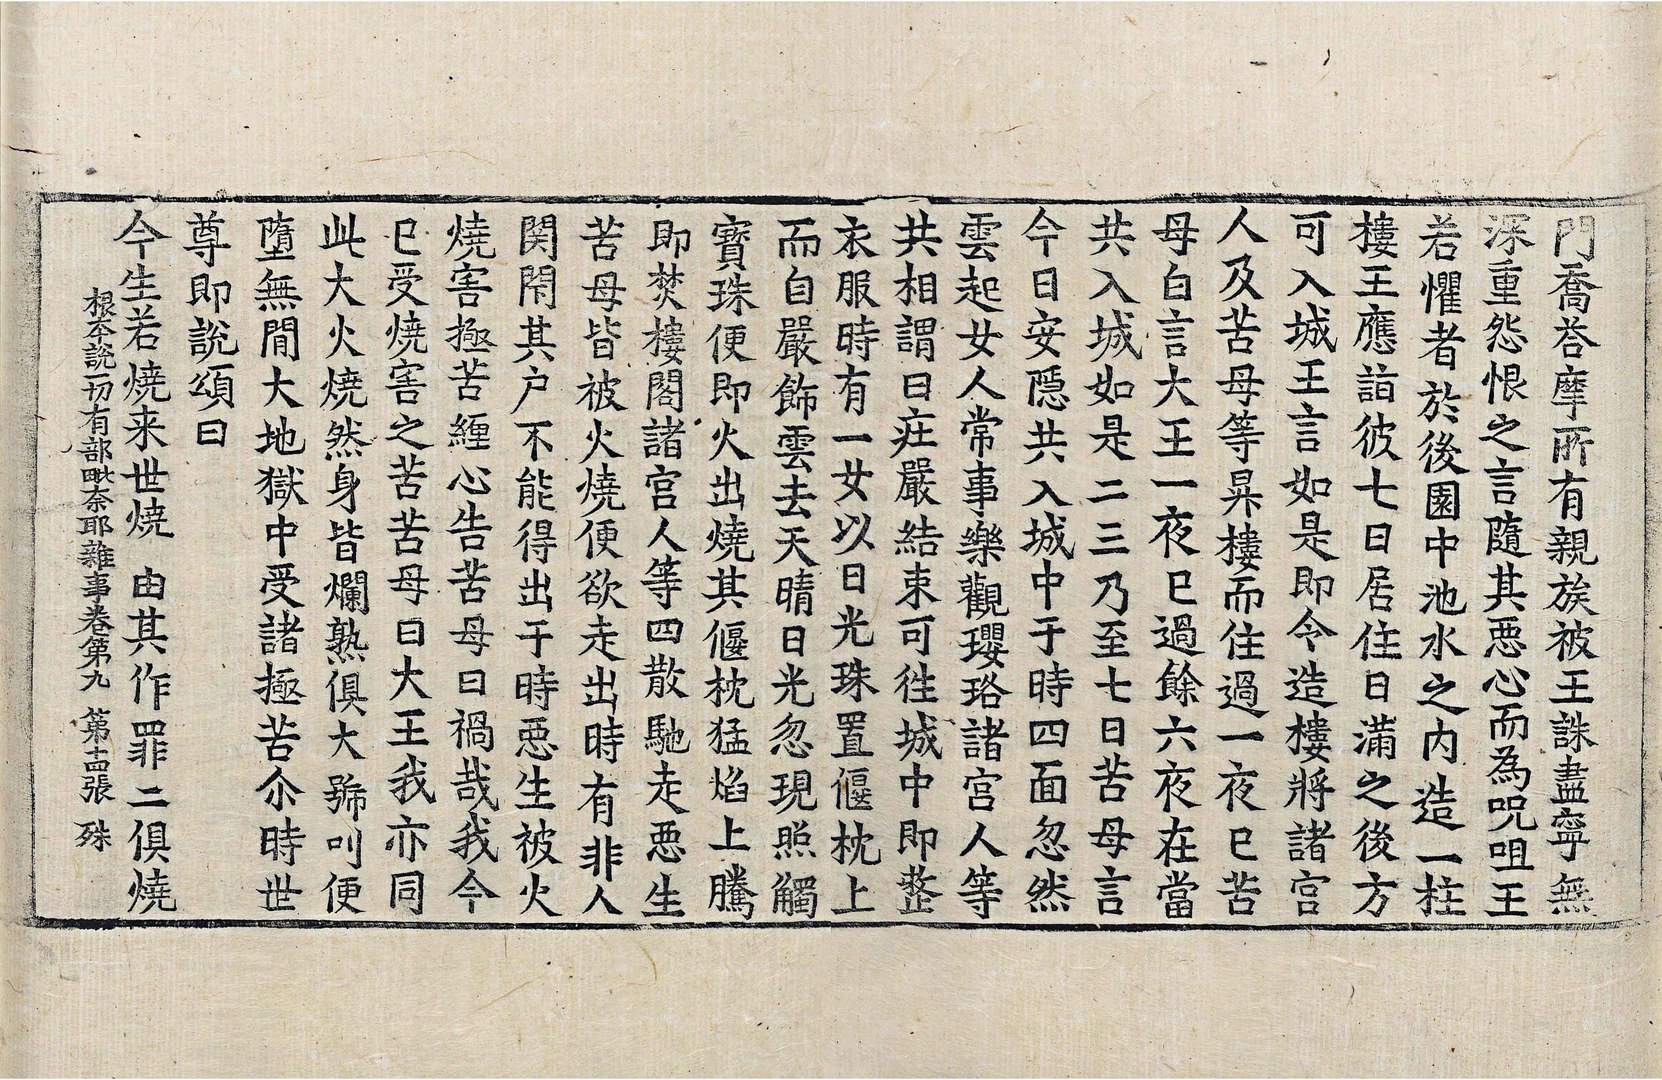 門喬荅摩所有親族被王誅盡寧無
深重怨恨之言隨其惡心而為呪咀王
若懼者於後園中池水之内造一柱
樓王應詣彼七日居住日滿之後方
可入城王言如是即令造樓將諸宫
人及苦母等昇樓而住過一夜已苦
母白言大王一夜已過餘六夜在當
共入城如是二三乃至七日苦母言
今日安隱共入城中于時四面忽然
雲起女人常事樂觀瓔珞諸宫人等
共相謂曰庄嚴結束可徃城中即整
衣服時有一女以日光珠置偃枕上
而自嚴飾雲去天晴日光忽現照觸
寶珠便即火出燒其偃枕猛焰上騰
即焚樓閣諸宫人等四散馳走惡生
苦母皆被火燒便欲走出時有非人
関閇其户不能得出于時惡生被火
燒害極苦纏心告苦母曰禍哉我今
已受燒害之苦苦母曰大王我亦同
此大火燒然身皆爛熟俱大號叫便
墮無間大地獄中受諸極苦尒時世
尊即說頌曰
今生若燒来世燒 由其作罪二俱燒
根本說一切有部毗奈耶雜事卷第九 第十四張 殊